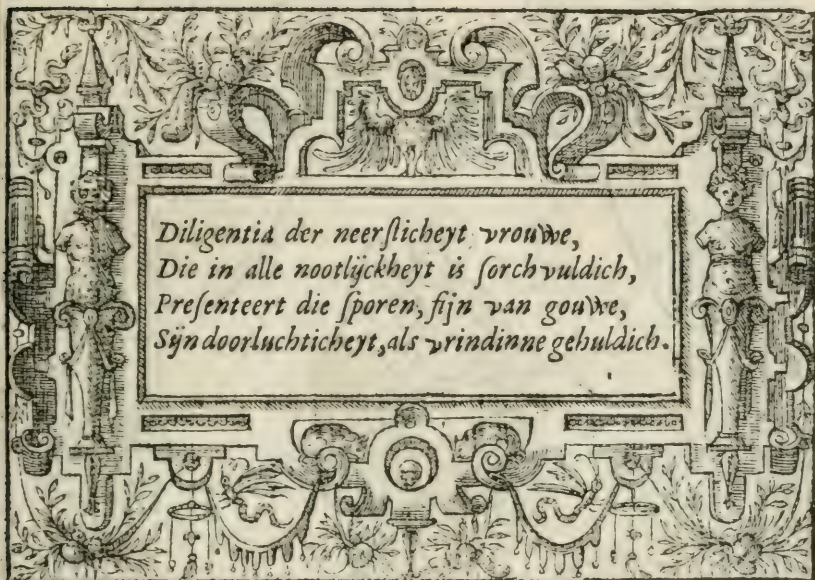 Diligentia der neerſticheyt vrouwe,
Die in alle nootlijckheyt is ſorchvuldich,
Preſenteert die ſporen, fijn van gouwe,
Sijn doorluchticheyt, als vrindinne gehuldich.